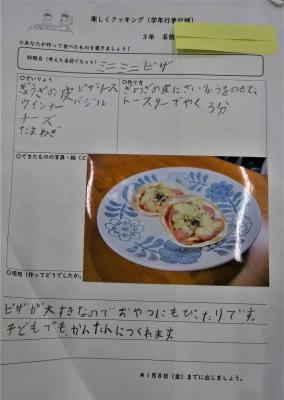 楽しくクッキング（学年行事記録）
３年 名前
☆あなたが作って食べたものを書きましょう！
料理名（考えた名前でもok）
ミニミニピザ
○ざいりょう
ぎょうざの皮 ピザソース
ウインナー バジル
チーズ
たまねぎ
○作り方
ぎょうざの皮にざいりょうをのせて、
トースターでやく。3分
○できたものの写真・絵（ど
○感想（作ってどうでしたか。
ピザが大すきなのでおやつにもぴったりです。
子どもでも、かんたんにつくれます。
＊1月8日（金）までに出しましょう。